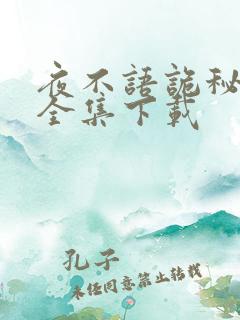 夜不語詭秘
全集下載
孔子
未经同意禁止转载